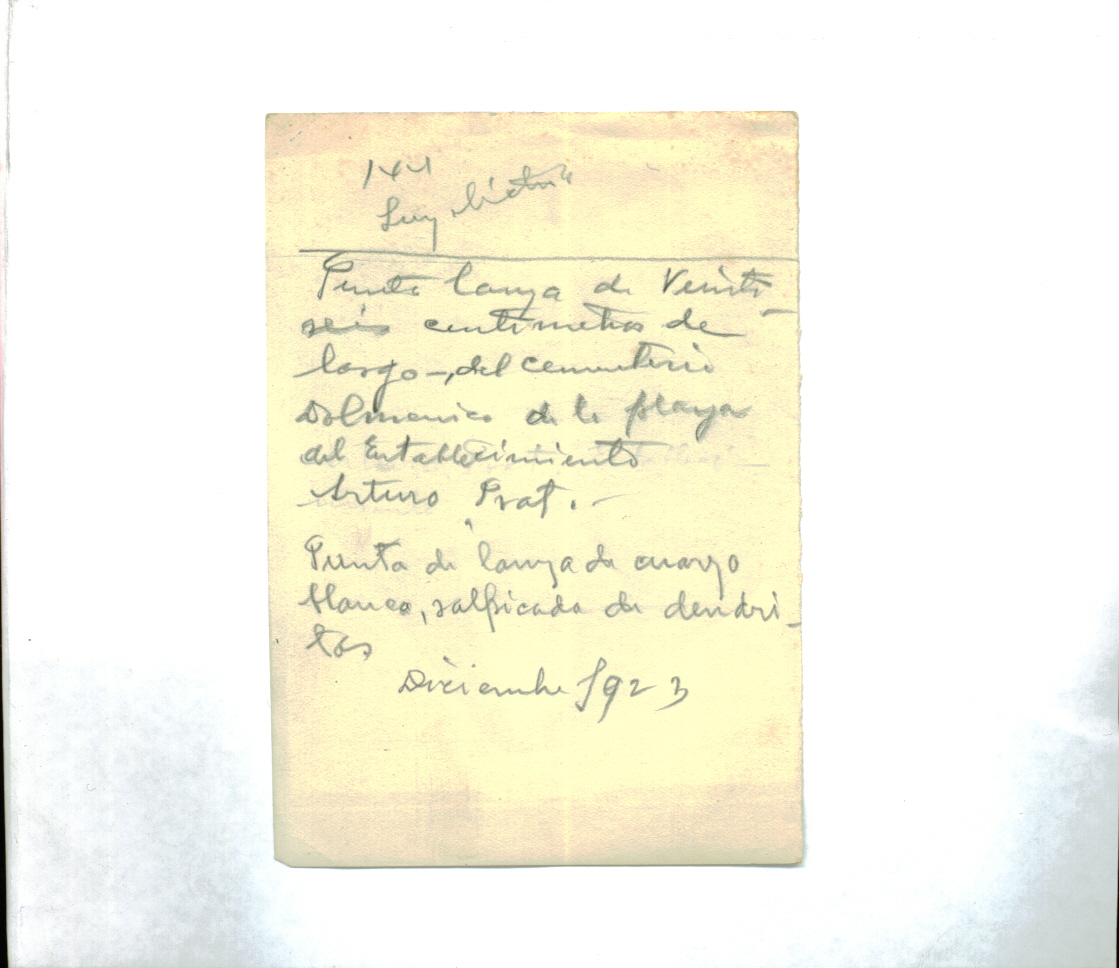 144
Punta lanza de Veinti-
seis centimetros de
largo-, del cementerio
Dolmenico de la playa
del Establecimiento
Arturo Prat.-
Punta de lanza de cuarzo
blanco, salpicada de dendri-
tas
Diciembre 1923